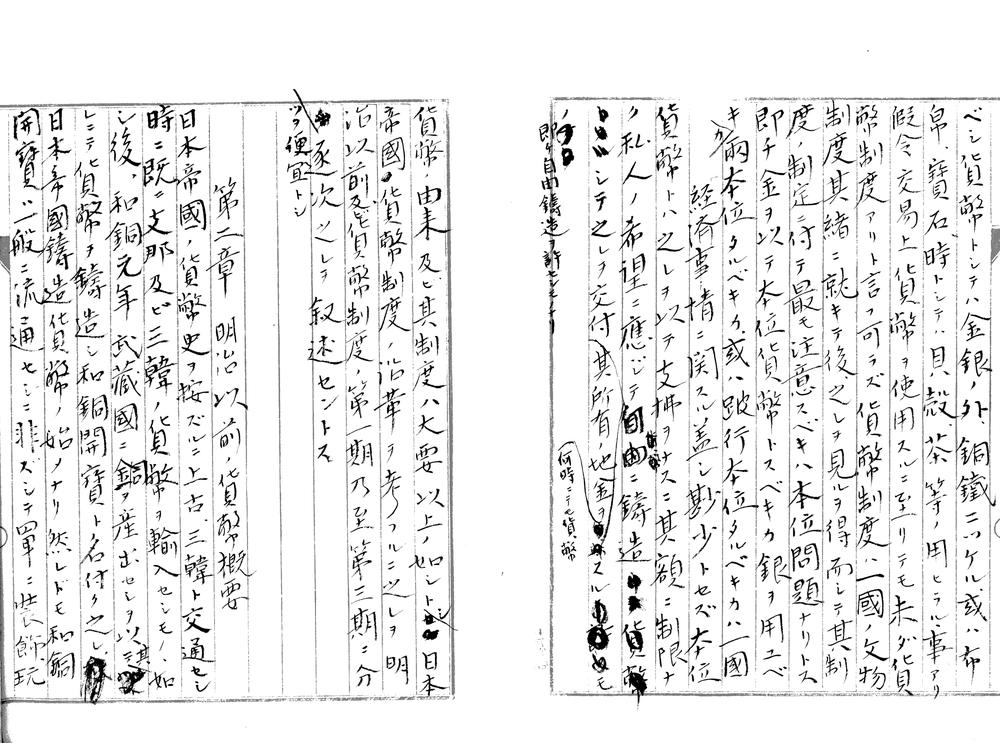 ベシ貨幣トシテハ金銀ノ外、銅鐵ニツケル或ハ布
帛、寶石、時トシテハ貝殻、茶、等ノ用ヒラル事アリ
假令交易上貨幣ヲ使用スルニ至リテモ未ダ貨
幣制度アリト言フ可ラズ貨幣制度ハ一國文物
制度其緒ニ就キテ後之レヲ見ルヲ得而シテ其制
度ノ制定ニ付テ最モ注意スベキハ本位問題ナリトス
即チ金ヲ以テ本位貨幣トスベキカ銀ヲ用ユベ
キカ兩本位タルベキカ或ハ跛行本位タルベキカハ一國
経済事情ニ関スル蓋シ尠少トセズ本位
貨幣トハ之レヲ以テ支拂ヲナスニ其額ニ制限ナ
ク私人ノ希望ニ應ジテ自由ニ鑄造 貨幣
シテ之レヲ交付其所有ノ地金ヲ スル モ
何時ニテモ貨幣
ノ
即ケ自由鑄造ヲ許セシモノナリ
貨幣ノ由来及ビ其制度ハ大要以上ノ如シト 日本
帝國ノ貨幣制度ノ沿革ヲ考フルニ之レヲ明
治以前及貨幣制度ノ第一期乃至第三期ニ分
ツヲ便宜トシ
逐次之レヲ叙述セントス
第二章 明治以前ノ貨幣概要
日本帝國ノ貨幣史ヲ按ズルニ上古、三韓ト交通セシ
時ニ既ニ支那及ビ三韓ノ貨幣ヲ輸入セシモノヽ如
シ後、和銅元年武藏國ニ銅ヲ産出セシヲ以テ其
レニテ貨幣ヲ鑄造シ和銅開寶ト名付ク之レ
日本帝國鑄造貨幣ノ始メナリ然レドモ和銅
開寶ハ一般ニ流通セシニ非ズシテ單ニ裝飾玩